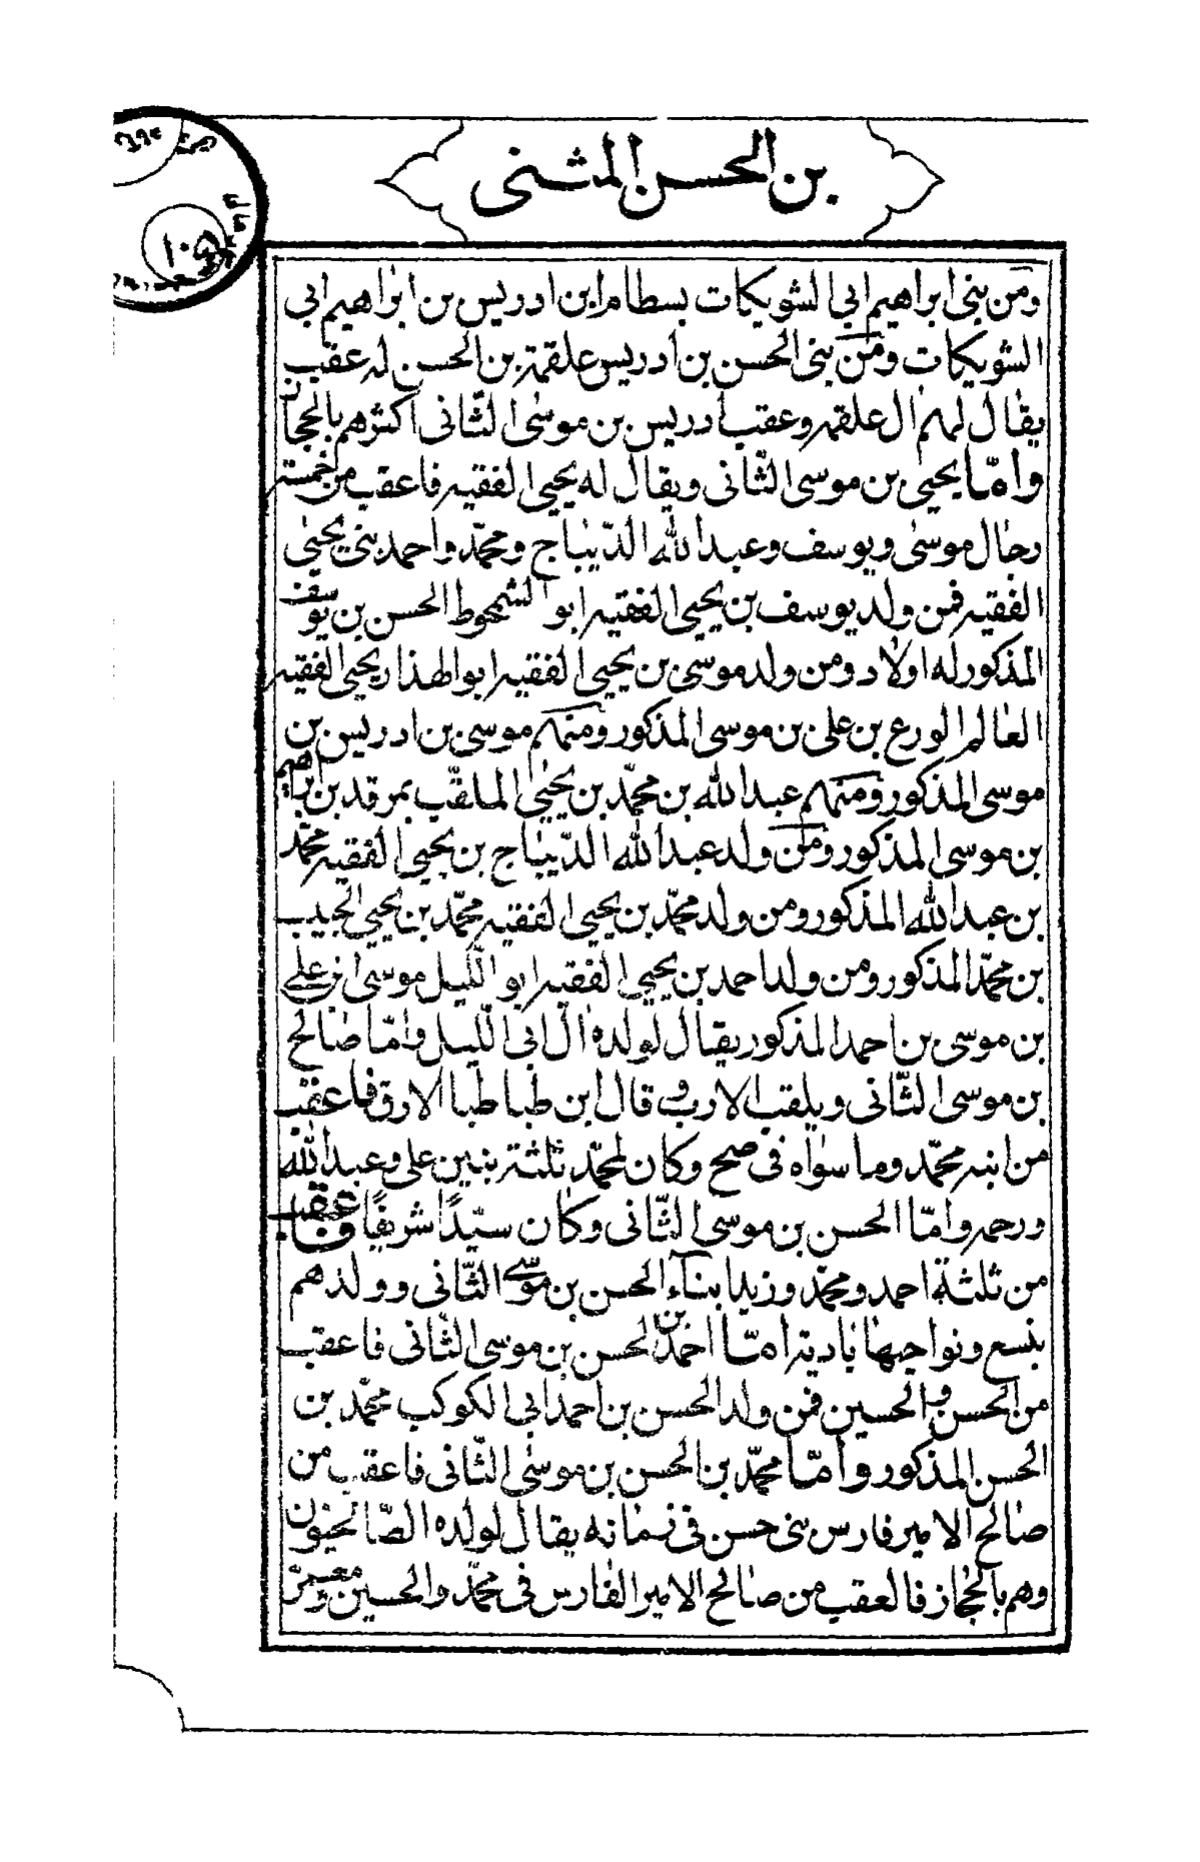 بن الحسن المثنى
١٠٥
ومن بنى ابراهيم ابي الشويكات بسطام ابن ادريس بن ابراهيم ابي
الشويكات ومن بنى الحسن بن ادريس علقمة بن الحسن له عقب
يقال لهم ال علقمه وعقب ادريس بن موسى الثانى اكثرهم بالحجاز
وامّا يحيى بن موسى الثّانى ويقال له يحيى الفقيه فاعقب من خمسة
رجال موسى ويوسف وعبد الله الدّيباج ومحمّد واحمد بنى يحيى
الفقيه فمن ولد يوسف بن يحيى الفقيه ابو الشمحوط الحسن بن يوسف
المذكور له اولاد ومن ولد موسى بن يحيى الفقيه ابو الهذار يحيى الفقيه
العالم الورع بن على بن موسى المذكور ومنهم موسى بن ادريس بن
موسى المذكور ومنهم عبد الله بن محمّد بن يحيى الملقّب بمرقد بن ابراهيم
بن موسى المذكور ومن ولد عبد الله الدّيباج بن يحيى الفقيه محمّد
بن عبد الله المذكور ومن ولد محمّد بن يحيى الفقيه محمّد بن يحيى الحبيب
بن محمّد المذكور ومن ولد احمد بن يحيى الفقيه ابو اللّيل موسى ابن على
بن موسى بن احمد المذكور يقال لولده ال ابى اللّيل وامّا صالح
بن موسى الثّانى ويلقب الارب وقال ابن طباطبا الارق فاعقب
من ابنه محمّد وما سواه فى صح وكان لمحمّد ثلثة بنين على وعبد الله
ورحمه وامّا الحسن بن موسى الثّانى وكان سيّدًا شريفًا فاعقب
من ثلثة احمد ومحمّد وزيد ابناء الحسن بن موسى الثّانى وولدهم
بنسع ونواحيها بادية امّا احمد بن الحسن بن موسى الثّانى فاعقب
من الحسن والحسين فمن ولد الحسن بن احمد ابى الكوكب محمّد بن
الحسن المذكور وامّا محمّد بن الحسن بن موسى الثّانى فاعقب من
صالح الامير فارس بنى حسن فى زمانه يقال لولده الصّالحيّون
وهم بالحجاز فالعقب من صالح الامير الفارس فى محمّد والحسين ومعمّر